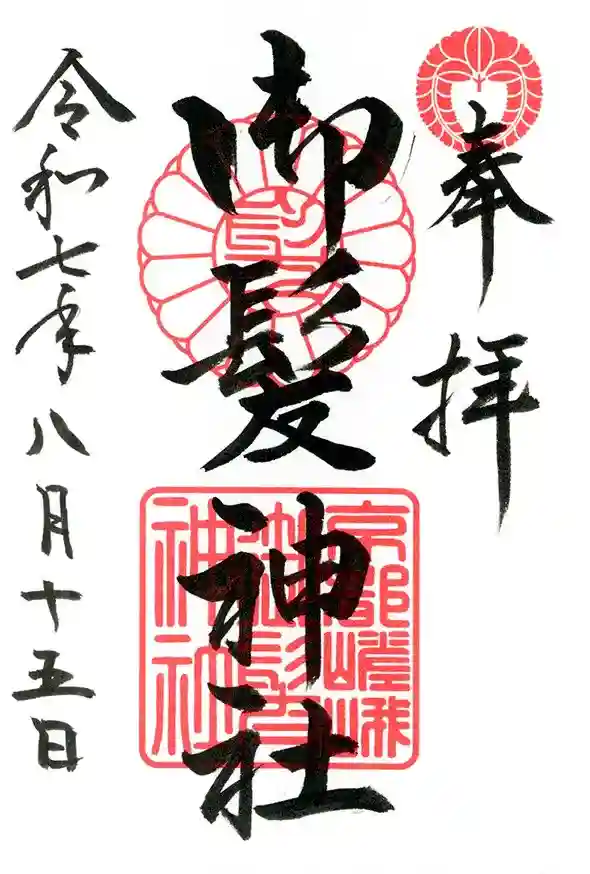 奉拝
御髪神社
京都嵯峨
御髪
神社
令和七年八月十五日